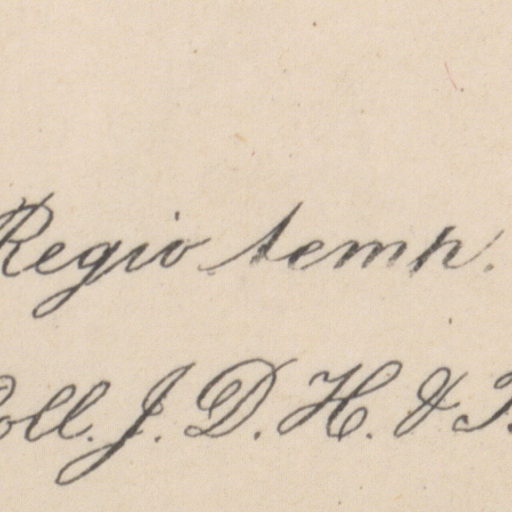 Regio temp.
Coll. J. D. H. & T.